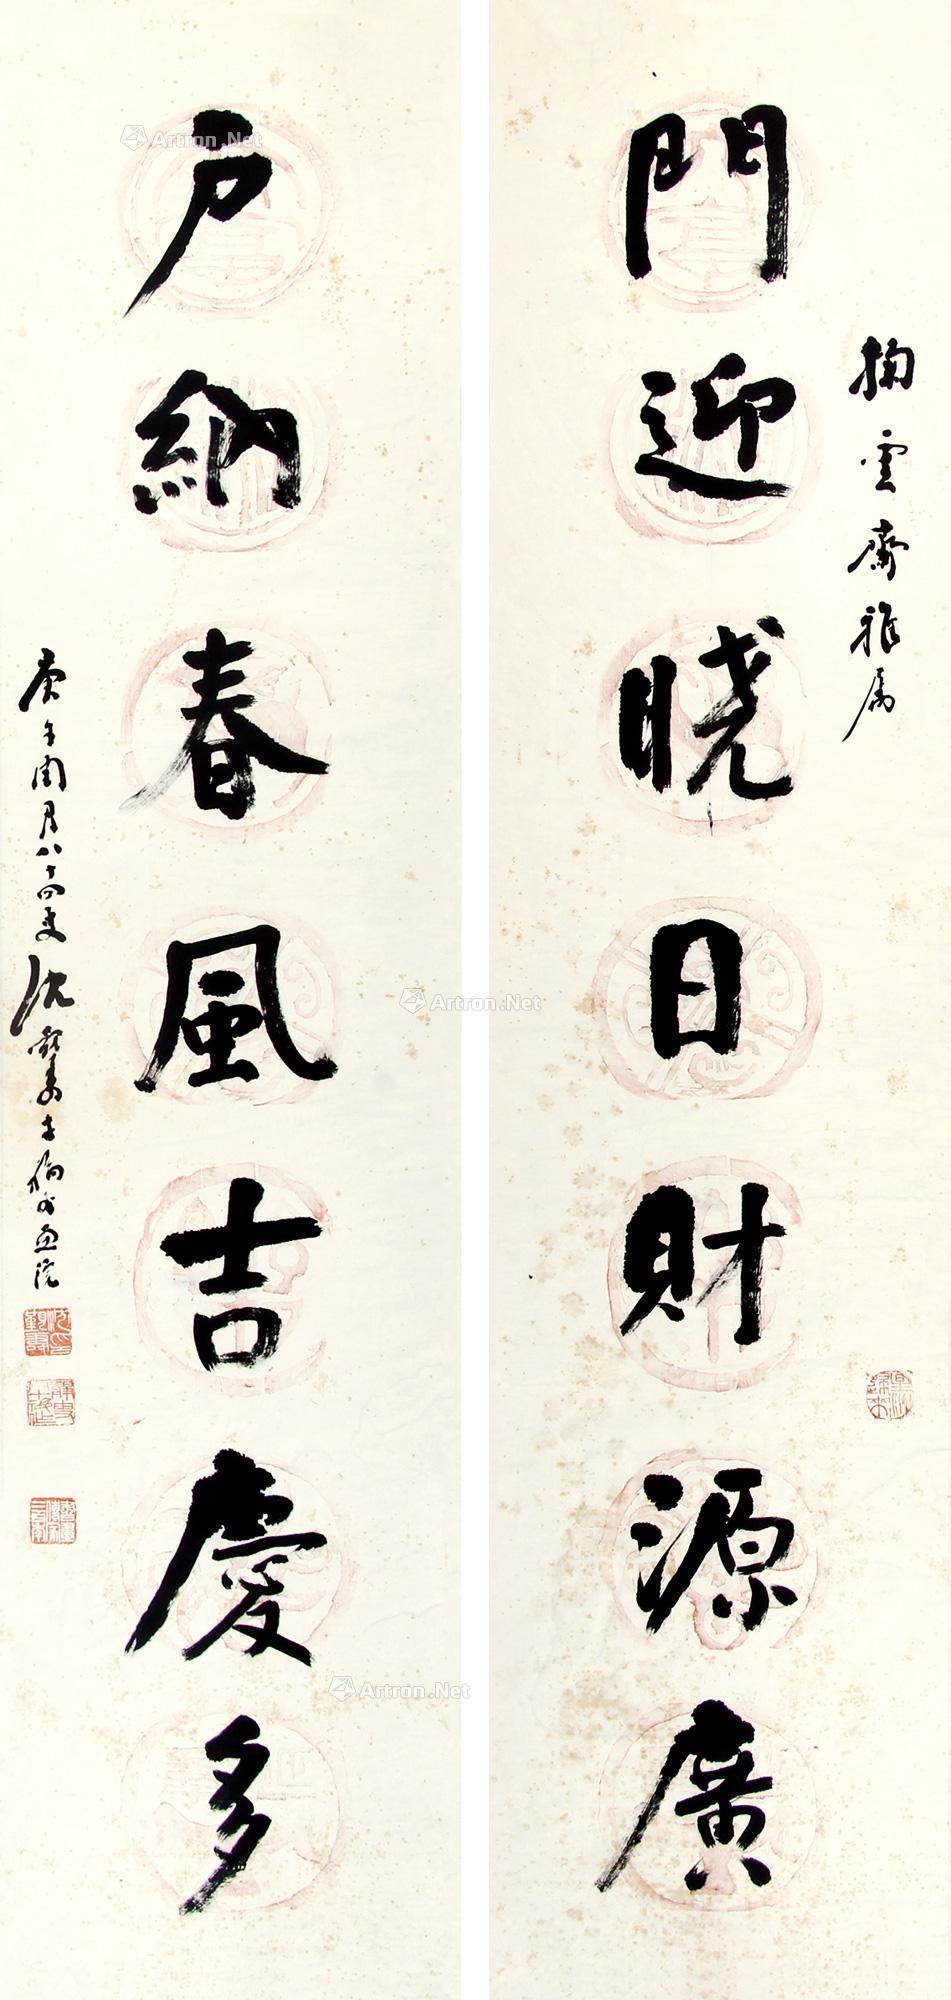 掬雲齋雅屬
門迎曉日財源廣
戶納春風吉慶多
庚午閏月八十四叟沈觀壽書於畫院
Artron.Net
Artron.Net
Artron.Net